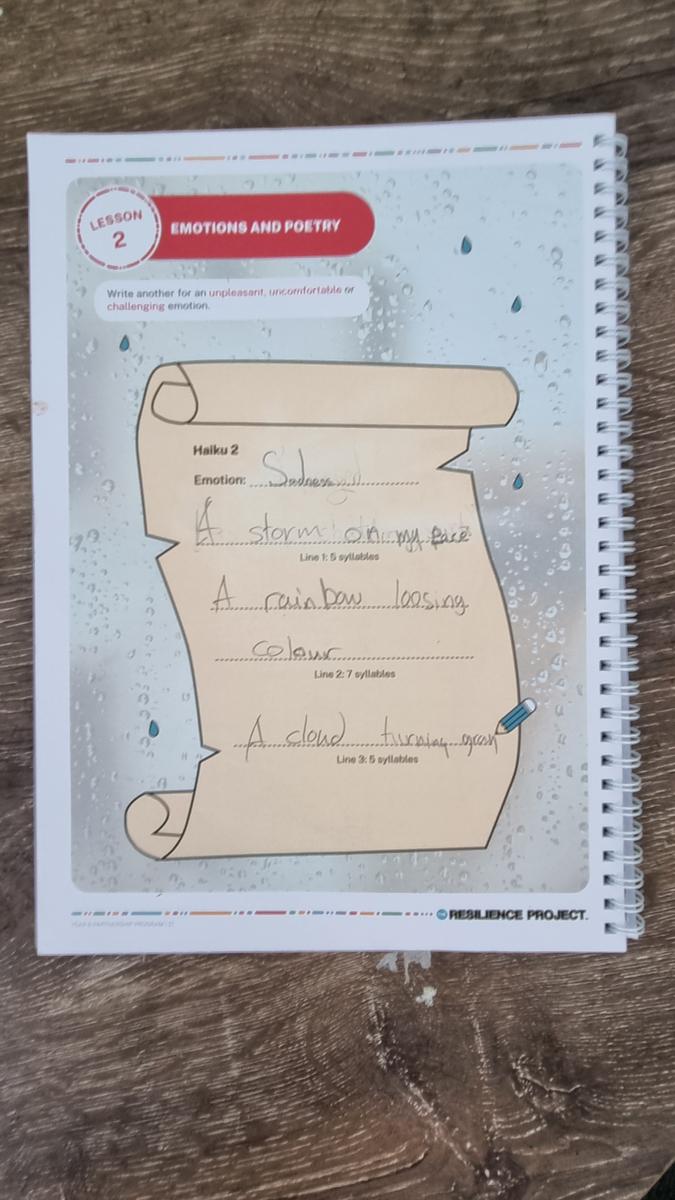 LESSON
2
EMOTIONS AND POETRY
Write another for an unpleasant, uncomfortable or
challenging emotion.
Haiku 2
Emotion: Sadness
A storm on my face
Line 1: 5 syllables
A rainbow loosing
colour
Line 2: 7 syllables
A cloud turning
Line 3: 5 syllables
THE RESILIENCE PROJECT.